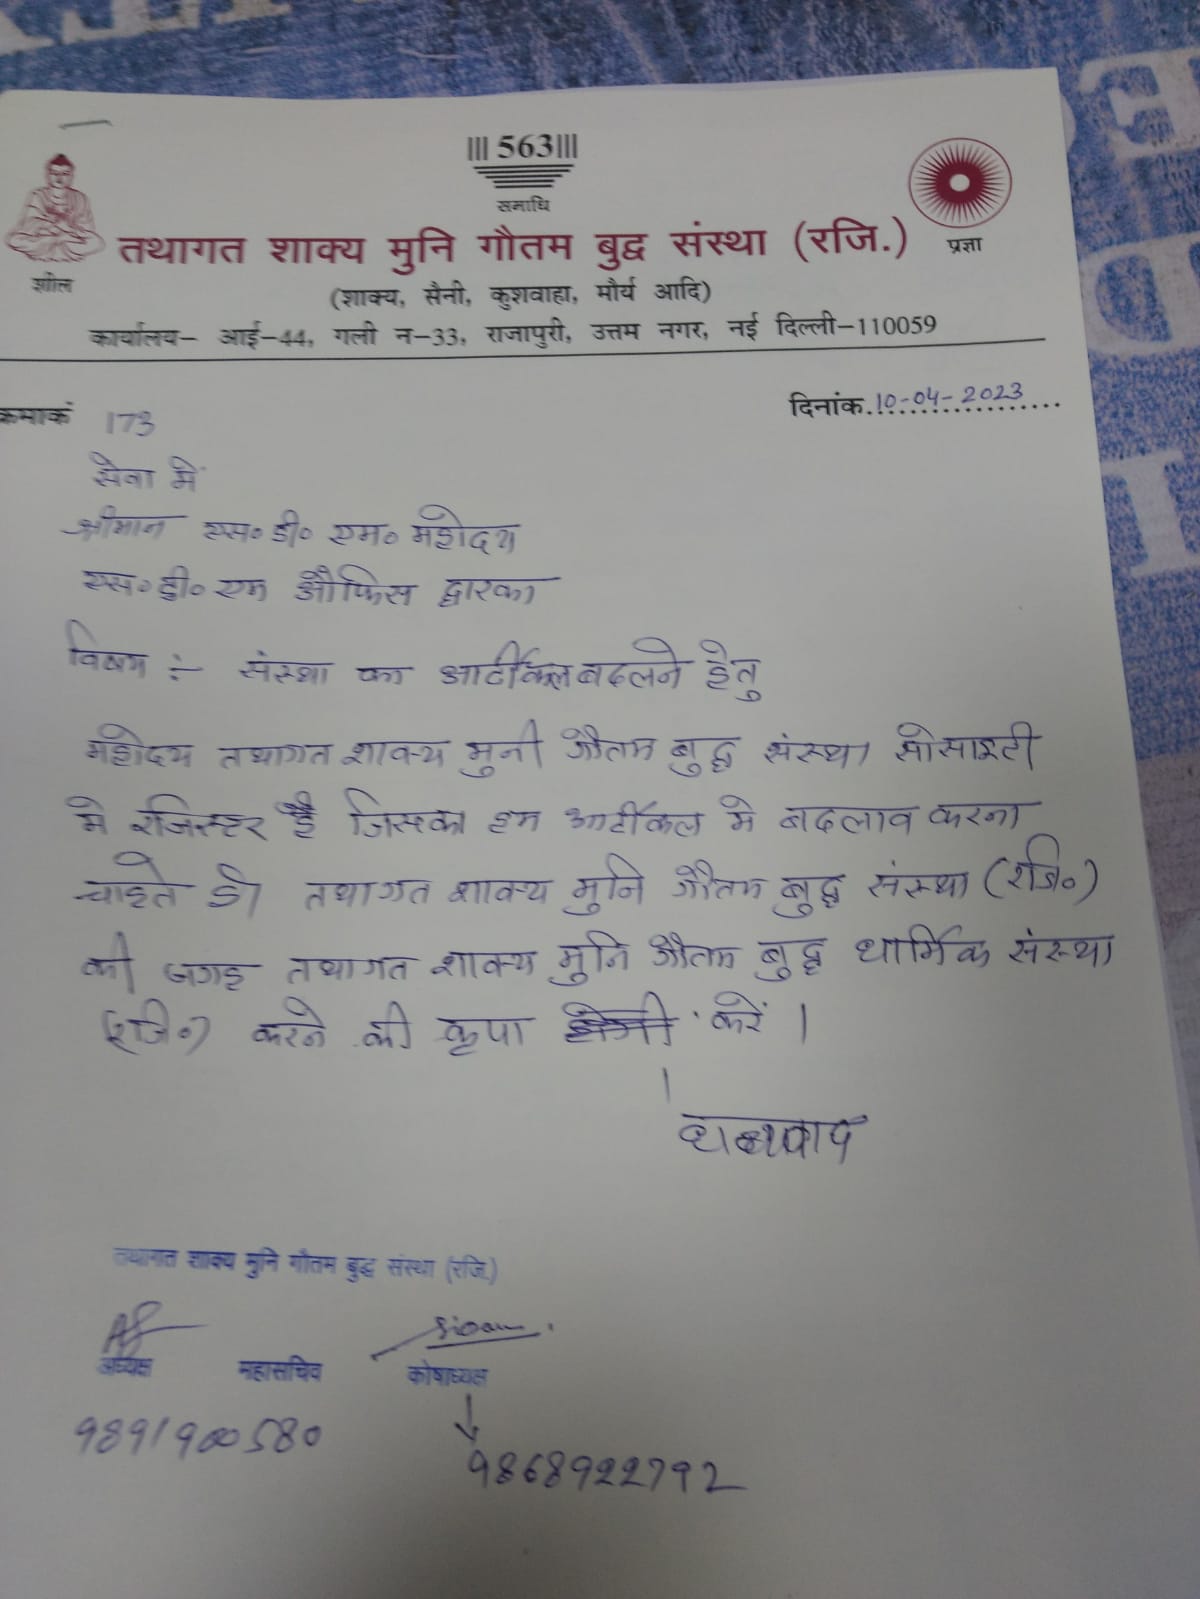 ||| 563 |||
समाधि
शील
प्रज्ञा
तथागत शाक्य मुनि गौतम बुद्ध संस्था (रजि.)
(शाक्य, सैनी, कुशवाहा, मौर्य आदि)
कार्यालय– आई–44, गली न–33, राजापुरी, उत्तम नगर, नई दिल्ली–110059
क्रमाकं 173
दिनांक. 10-04-2023
सेवा में
श्रीमान एस॰ डी॰ एम॰ महोदय
एस॰ डी॰ एम ऑफिस द्वारका
विषय :- संस्था का आर्टीकल बदलने हेतु
महोदय तथागत शाक्य मुनी गौतम बुद्ध संस्था सोसाइटी
मे रजिस्टर है जिसका हम आर्टीकल मे बदलाव करना
चाहते है। तथागत शाक्य मुनि गौतम बुद्ध संस्था (रजि॰)
की जगह तथागत शाक्य मुनि गौतम बुद्ध धार्मिक संस्था
(रजि॰) करने की कृपा करें।
धन्यवाद
तथागत शाक्य मुनि गौतम बुद्ध संस्था (रजि.)
अध्यक्ष महासचिव कोषाध्यक्ष
9891900580
9868922792